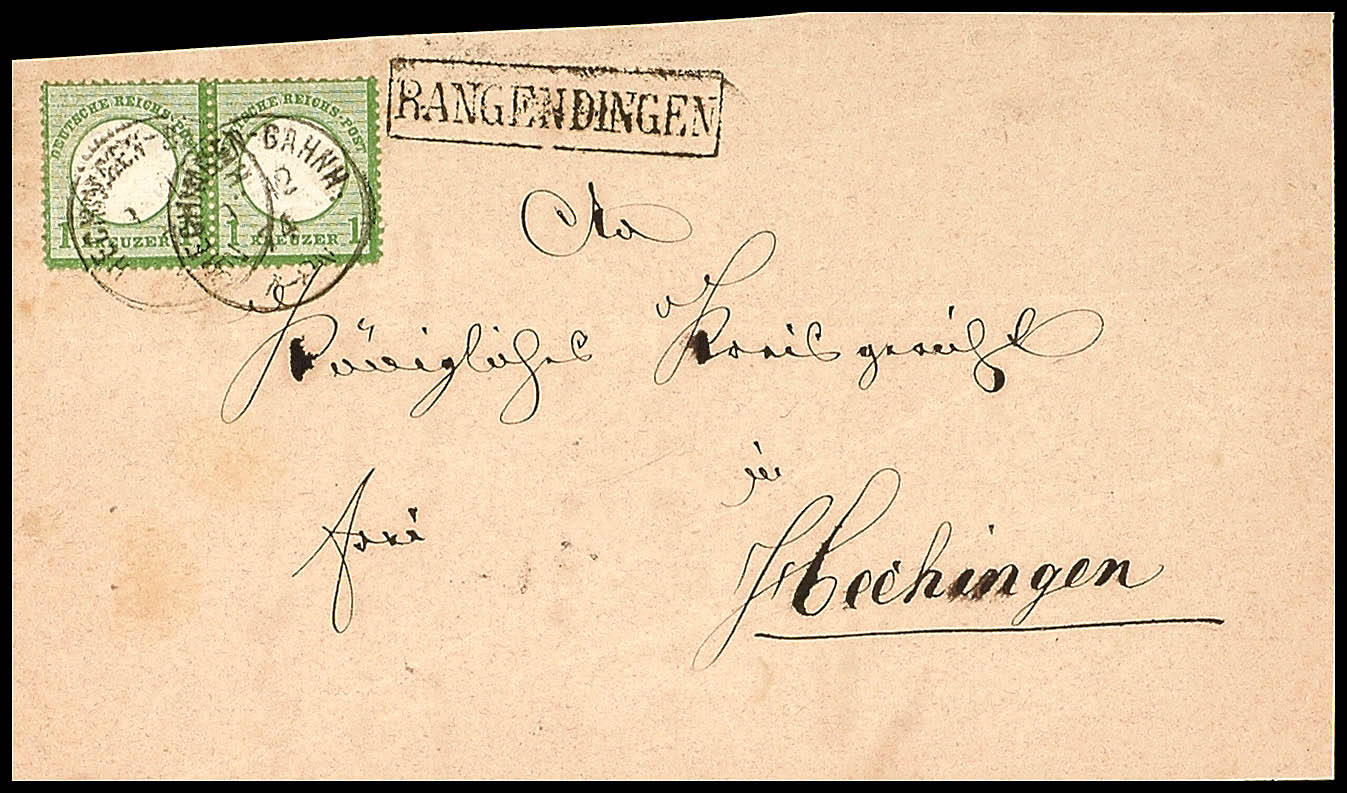 DEUTSCHE REICHS-POST
1 KREUZER 1
DEUTSCHE REICHS-POST
1 KREUZER 1
HECHINGEN BAHNH.
HECHINGEN BAHNH.
RANGENDINGEN
An
Königliches Kreisgericht
in
frei
Hechingen